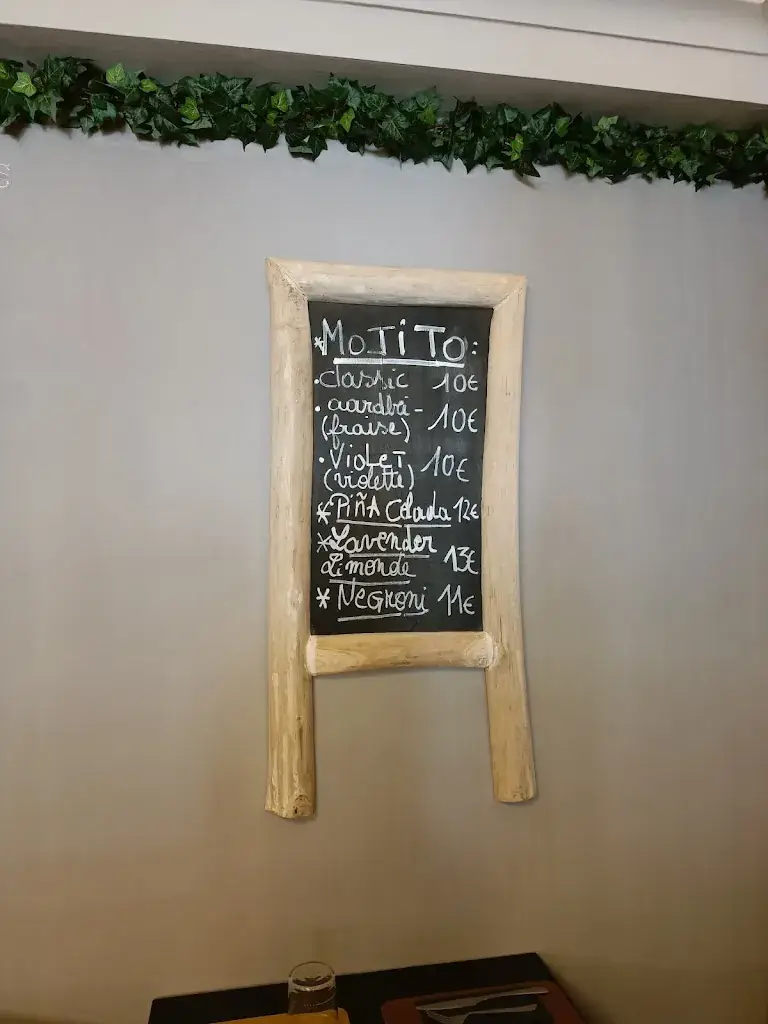 *MoJiTo:
• classic 10€
• aardbei - 10€
(fraise)
• VioLeT 10€
(violette)
* PiÑA Colada 12€
* Lavender
Limonde 13€
* NeGRoni 11€